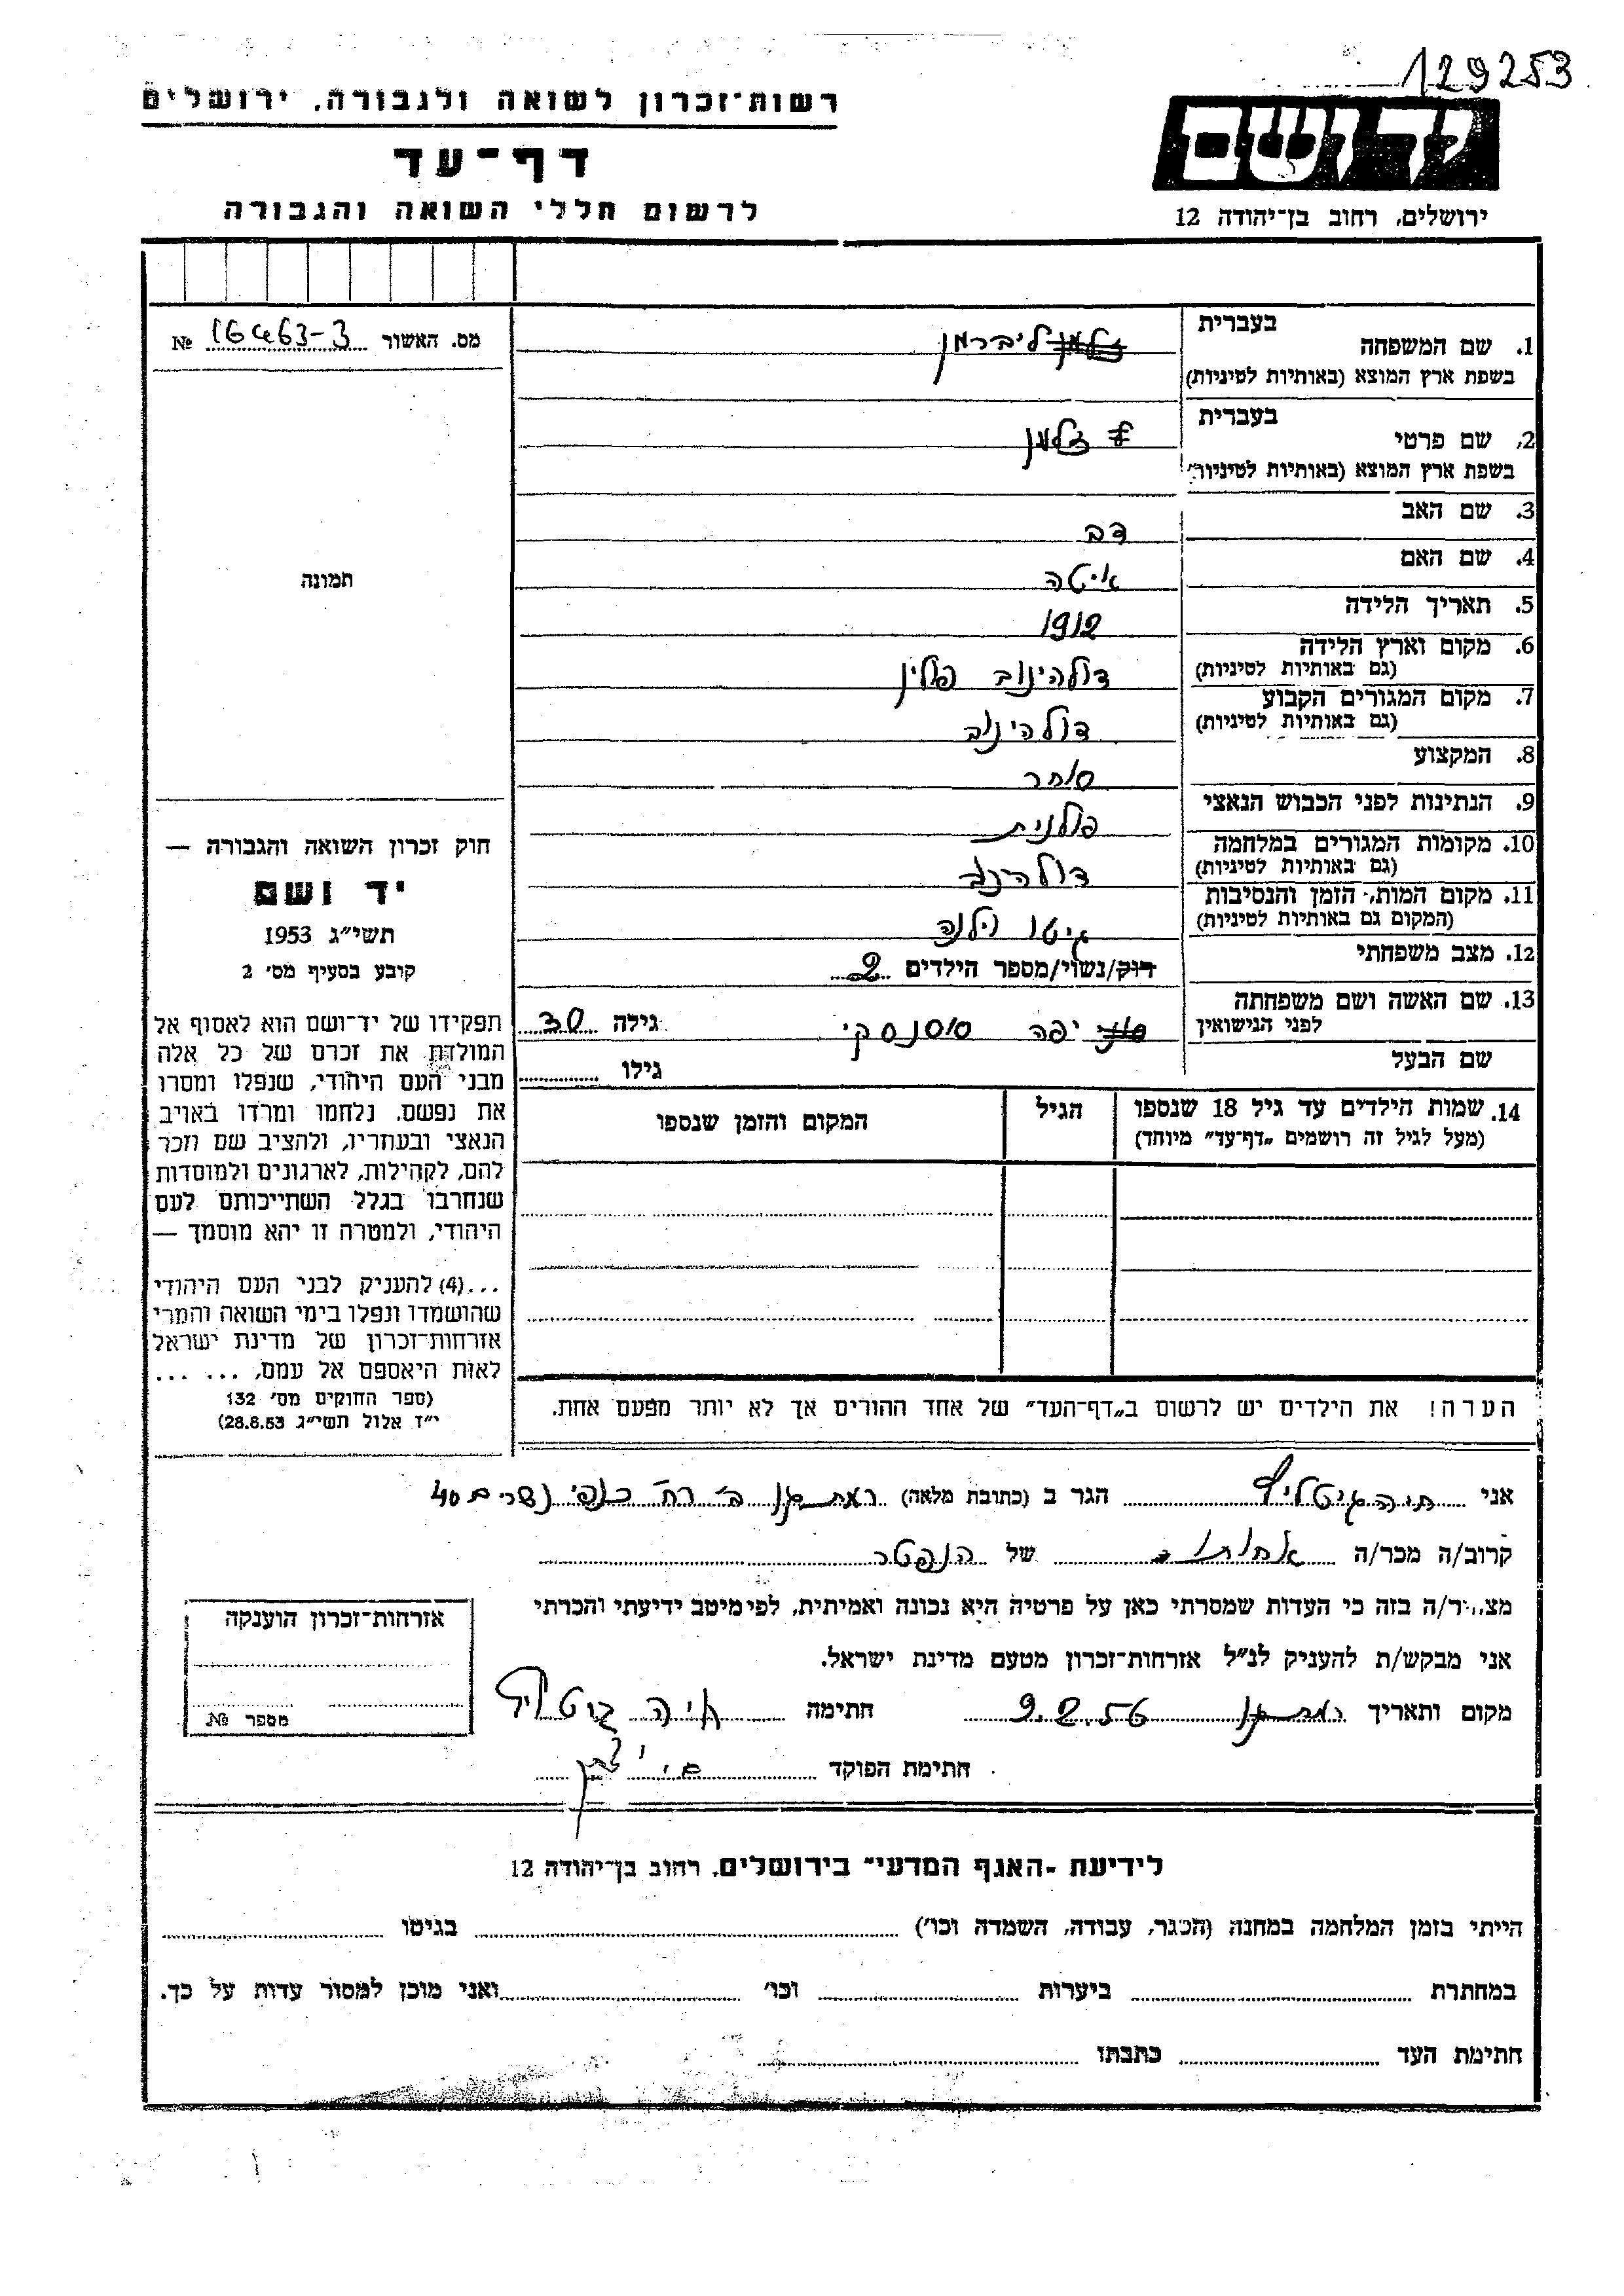 129253
רשות-זכרון לשואה ולגבורה, ירושלים
יד ושם
דף-עד
לרשום חללי השואה והגבורה
ירושלים, רחוב בן-יהודה 12
מס. האשור 16463-3 №
תמונה
חוק זכרון השואה והגבורה —
יד ושם
תשי״ג 1953
קובע בסעיף מס׳ 2
תפקידו של יד-ושם הוא לאסוף אל
המולדת את זכרם של כל אלה
מבני העם היהודי, שנפלו ומסרו
את נפשם, נלחמו ומרדו באויב
הנאצי ובעוזריו, ולהציב שם וזכר
להם, לקהילות, לארגונים ולמוסדות
שנחרבו בגלל השתייכותם לעם
היהודי, ולמטרה זו יהא מוסמך —
...(4) להעניק לבני העם היהודי
שהושמדו ונפלו בימי השואה והמרי
אזרחות-זכרון של מדינת ישראל
לאות היאספם אל עמם, ... ...
(ספר החוקים מס׳ 132
י״ז אלול תשי״ג 28.8.53)
בעברית
1. שם המשפחה זלמן ליברמן
בשפת ארץ המוצא (באותיות לטיניות)
בעברית
2. שם פרטי זלמן
בשפת ארץ המוצא (באותיות לטיניות)
3. שם האב דב
4. שם האם איטה
5. תאריך הלידה 1912
6. מקום וארץ הלידה דולהינוב פולין
(גם באותיות לטיניות)
7. מקום המגורים הקבוע דולהינוב
(גם באותיות לטיניות)
8. המקצוע סוחר
9. הנתינות לפני הכבוש הנאצי פולנית
10. מקומות המגורים במלחמה דולהינוב
(גם באותיות לטיניות)
11. מקום המות, הזמן והנסיבות גיטו וילנה
(המקום גם באותיות לטיניות)
12. מצב משפחתי רוק/נשוי/מספר הילדים 2
13. שם האשה ושם משפחתה יפה סוסנסקי גילה 30
לפני הנישואין
שם הבעל גילו
14. שמות הילדים עד גיל 18 שנספו הגיל המקום והזמן שנספו
(מעל לגיל זה רושמים „דף-עד״ מיוחד)
הערה! את הילדים יש לרשום ב„דף-העד״ של אחד ההורים אך לא יותר מפעם אחת.
אני חיה גיטליץ הגר ב (כתובת מלאה) רמת גן ב׳ רח׳ כנפי נשרים 40
קרוב/ה מכר/ה אחותו של הנפטר
מצהיר/ה בזה כי העדות שמסרתי כאן על פרטיה היא נכונה ואמיתית, לפי מיטב ידיעתי והכרתי
אני מבקש/ת להעניק לנ״ל אזרחות-זכרון מטעם מדינת ישראל.
מקום ותאריך רמת גן 9.2.56 חתימה חיה גיטליץ
חתימת הפוקד
אזרחות-זכרון הוענקה
מספר №
לידיעת „האגף המדעי״ בירושלים, רחוב בן-יהודה 12
הייתי בזמן המלחמה במחנה (הסגר, עבודה, השמדה וכו׳) בגיטו
במחתרת ביערות וכו׳ ואני מוכן למסור עדות על כך.
חתימת העד כתבתו